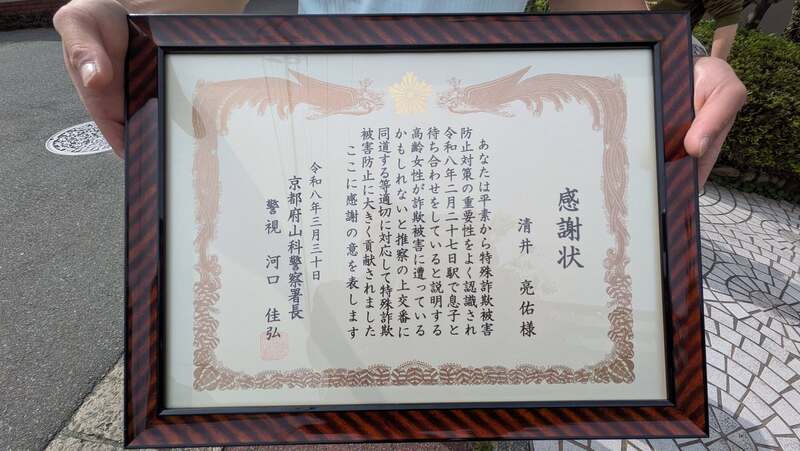 感謝状
清井 亮佑様
あなたは平素から特殊詐欺被害
防止対策の重要性をよく認識され
令和八年二月二十七日駅で息子と
待ち合わせをしていると説明する
高齢女性が詐欺被害に遭っている
かもしれないと推察の上交番に
同道する等適切に対応して特殊詐欺
被害防止に大きく貢献されました
ここに感謝の意を表します
令和八年三月三十日
京都府山科警察署長
警視 河口 佳弘